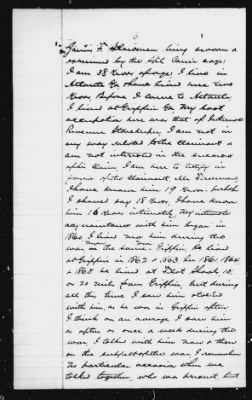 James F. being sworn &
examined by the Spl. Comr. says:
I am 38 years of age, I live in
Atlanta Ga. I have lived here two
years. Before I came to Atlanta
I lived at Griffin Ga. My last
occupation here was that of Internal
Revenue Storekeeper. I am not in
any way related to the claimant &
am not interested in the success
of his claim. I am here to testify in
favor of the claimant, Mr.
I have known him 19 years. perhaps
I should say 18 years. I have known
him 16 years intimately. My intimate
acquaintance with him began in
1860. I lived near him during the
war in Griffin. He lived
at Griffin in 1862 & 1863. In 1861, 1864
& 1865 he lived at Flat Shoals, 15
or 20 miles from Griffin, but during
all this time I saw him & talked
with him, as he was in Griffin often
I think on an average I saw him
as often as once a week during the
war. I talked with him now & then
on the subject of the war. I remember
no particular occasion when we
talked together, who was present but